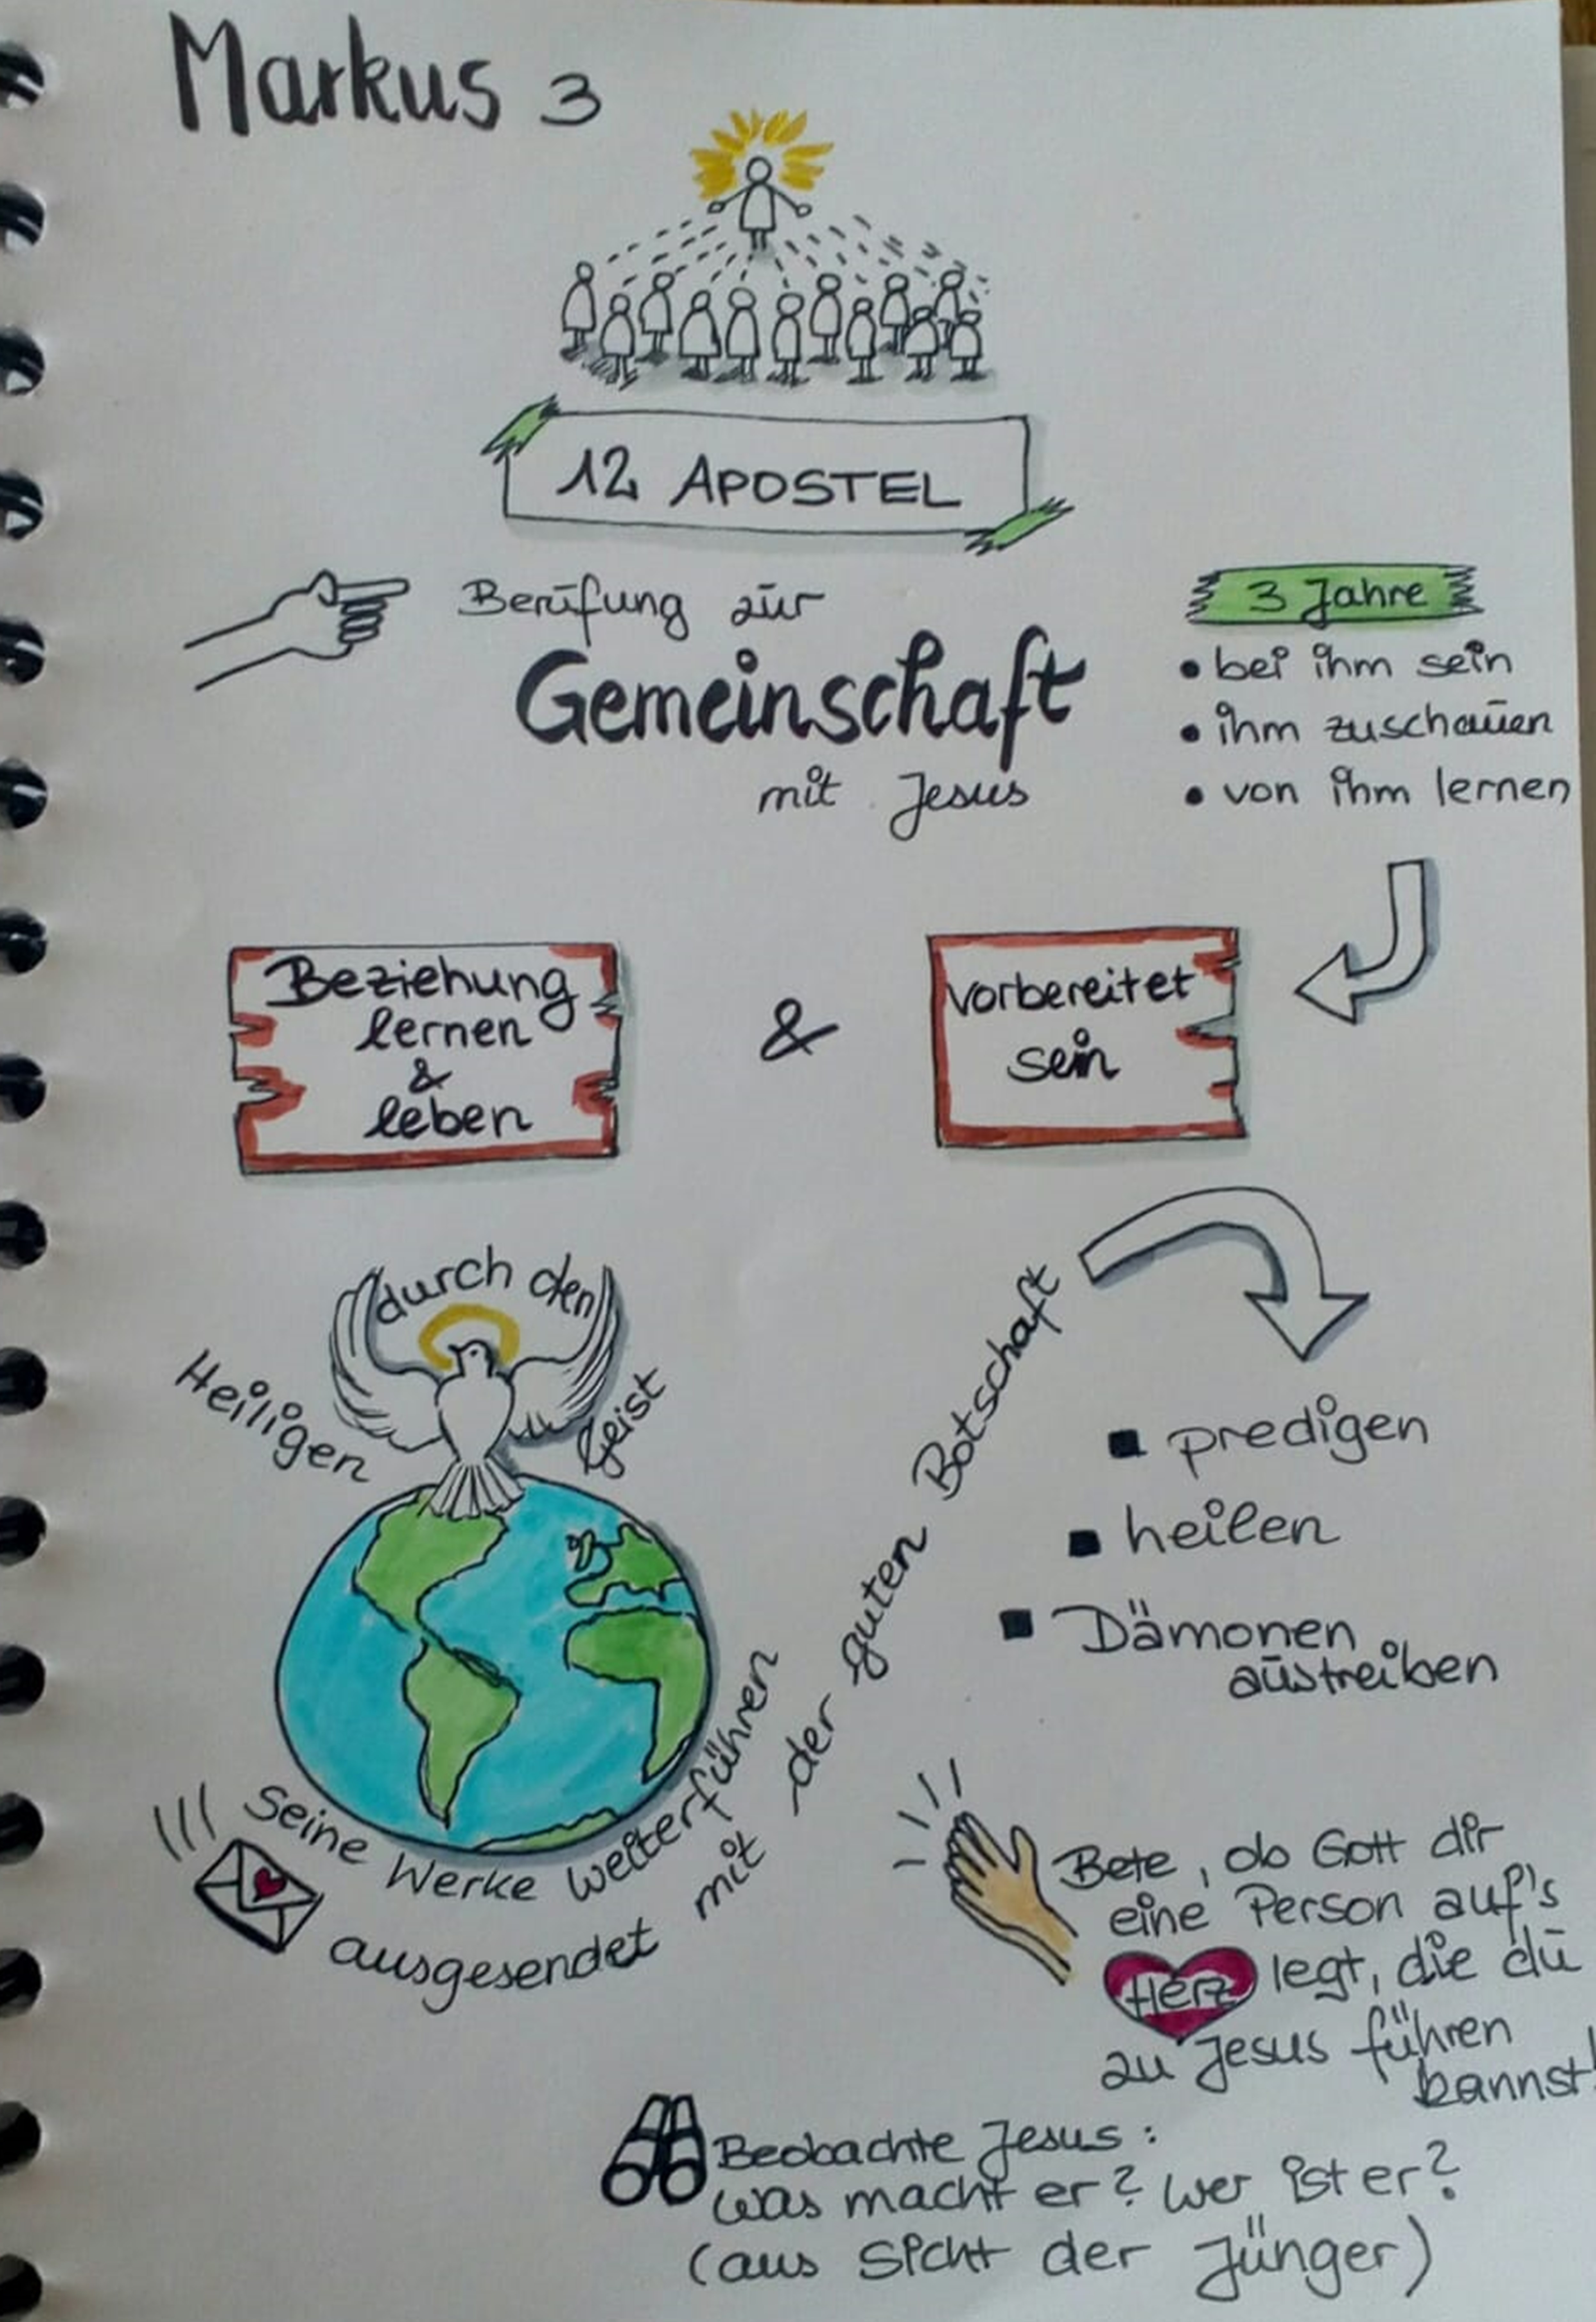 Markus 3
12 APOSTEL
Berufung zur
Gemeinschaft
mit Jesus
3 Jahre
• bei ihm sein
• ihm zuschauen
• von ihm lernen
Beziehung
lernen
&
leben
&
vorbereitet
sein
durch den
Heiligen
Geist
seine Werke weiterführen
ausgesendet mit der guten Botschaft
▪ predigen
▪ heilen
▪ Dämonen
austreiben
Bete, ob Gott dir
eine Person auf's
Herz legt, die du
zu Jesus führen
kannst!
Beobachte Jesus:
was macht er? Wer ist er?
(aus Sicht der Jünger)